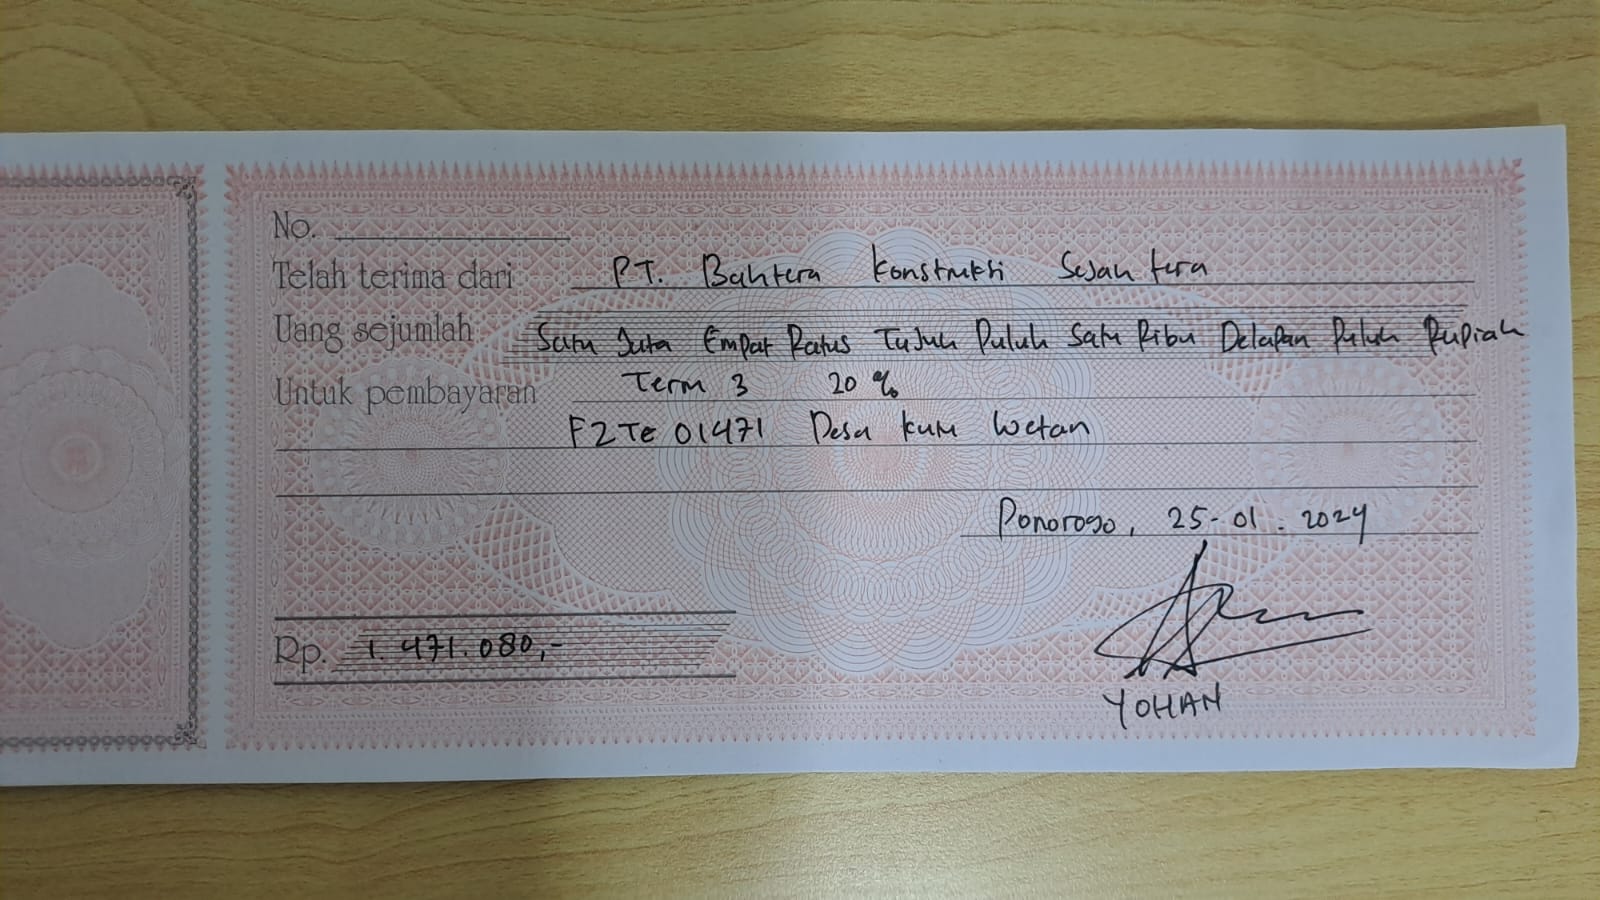 No.
Telah terima dari PT. Bahtera Konstruksi Sejahtera
Uang sejumlah Satu Juta Empat Ratus Tujuh Puluh Satu Ribu Delapan Puluh Rupiah
Untuk pembayaran Term 3 20 %
FZTE 01471 Desa Kutu Wetan
Ponorogo, 25-01-2024
Rp. 1.471.080,-
YOHAN